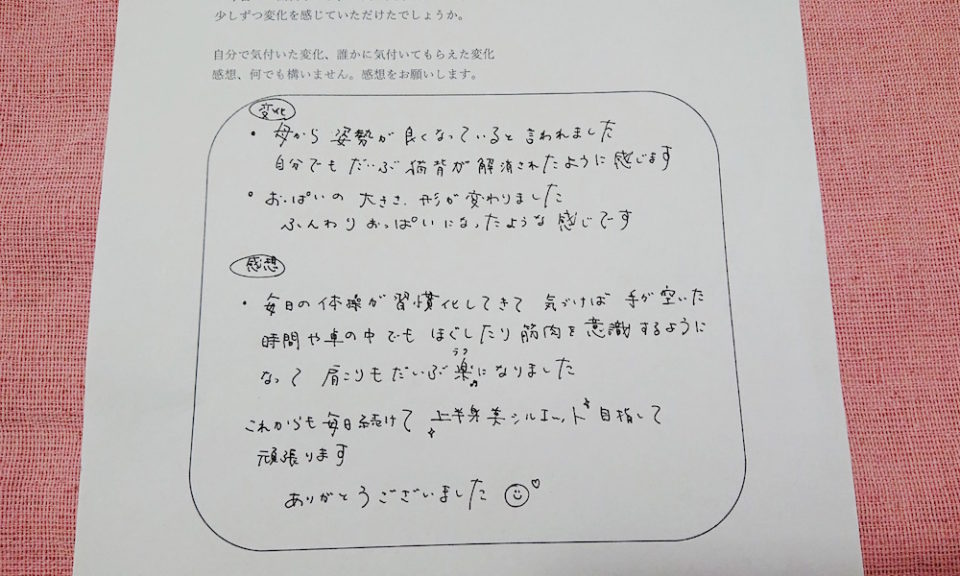 少しずつ変化を感じていただけたでしょうか。
自分で気付いた変化、誰かに気付いてもらえた変化
感想、何でも構いません。感想をお願いします。
変化
・母から 姿勢が良くなっていると言われました
自分でも だいぶ 猫背が 解消されたように 感じます
・おっぱいの 大きさ、形が変わりました
ふんわりおっぱいになったような 感じです
感想
・毎日の体操が習慣化してきて 気づけば 手が空いた
時間や車の中でも ほぐしたり筋肉を意識するように
なって 肩こりもだいぶ楽になりました
ラク
これからも毎日続けて 上半身美シルエット 目指して
頑張ります
ありがとうございました ☺♡